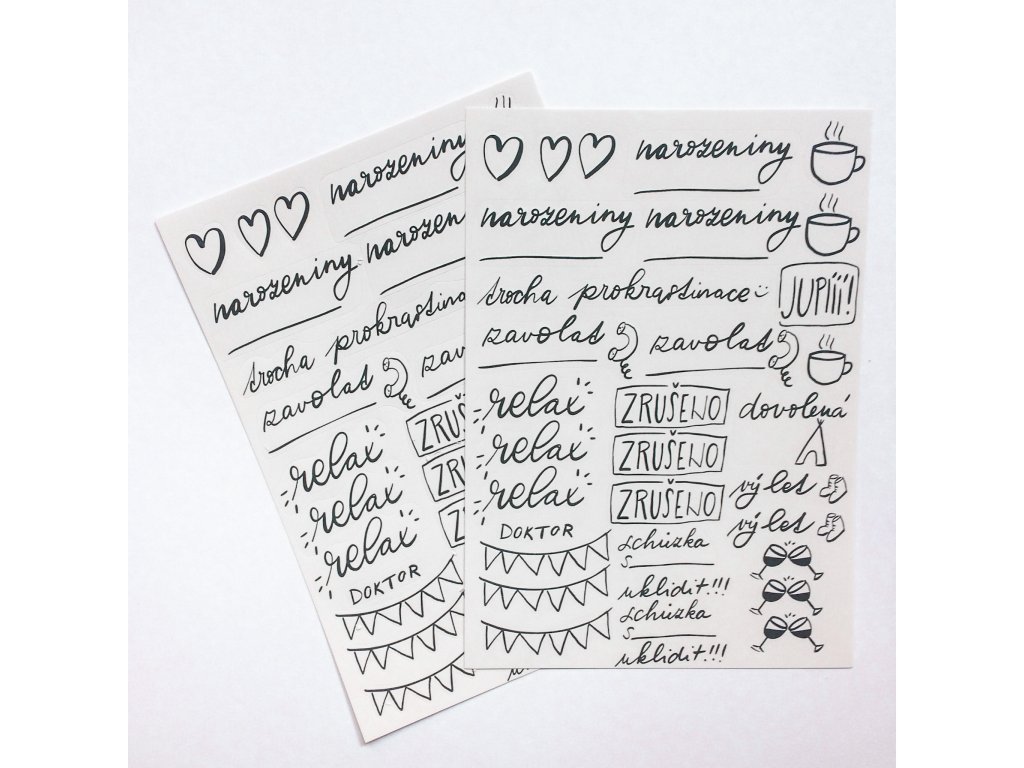 narozeniny
narozeniny
narozen
trocha prokrastinace
zavolat
zavo
relax
relax
relax
DOKTOR
ZRUŠ
ZRU
ZR
narozeniny
narozeniny narozeniny
trocha prokrastinace
JUPÍÍÍ!
zavolat zavolat
relax
relax
relax
ZRUŠENO
ZRUŠENO
ZRUŠENO
dovolená
výlet
výlet
DOKTOR
schůzka
s
uklidit!!!
schůzka
s
uklidit!!!